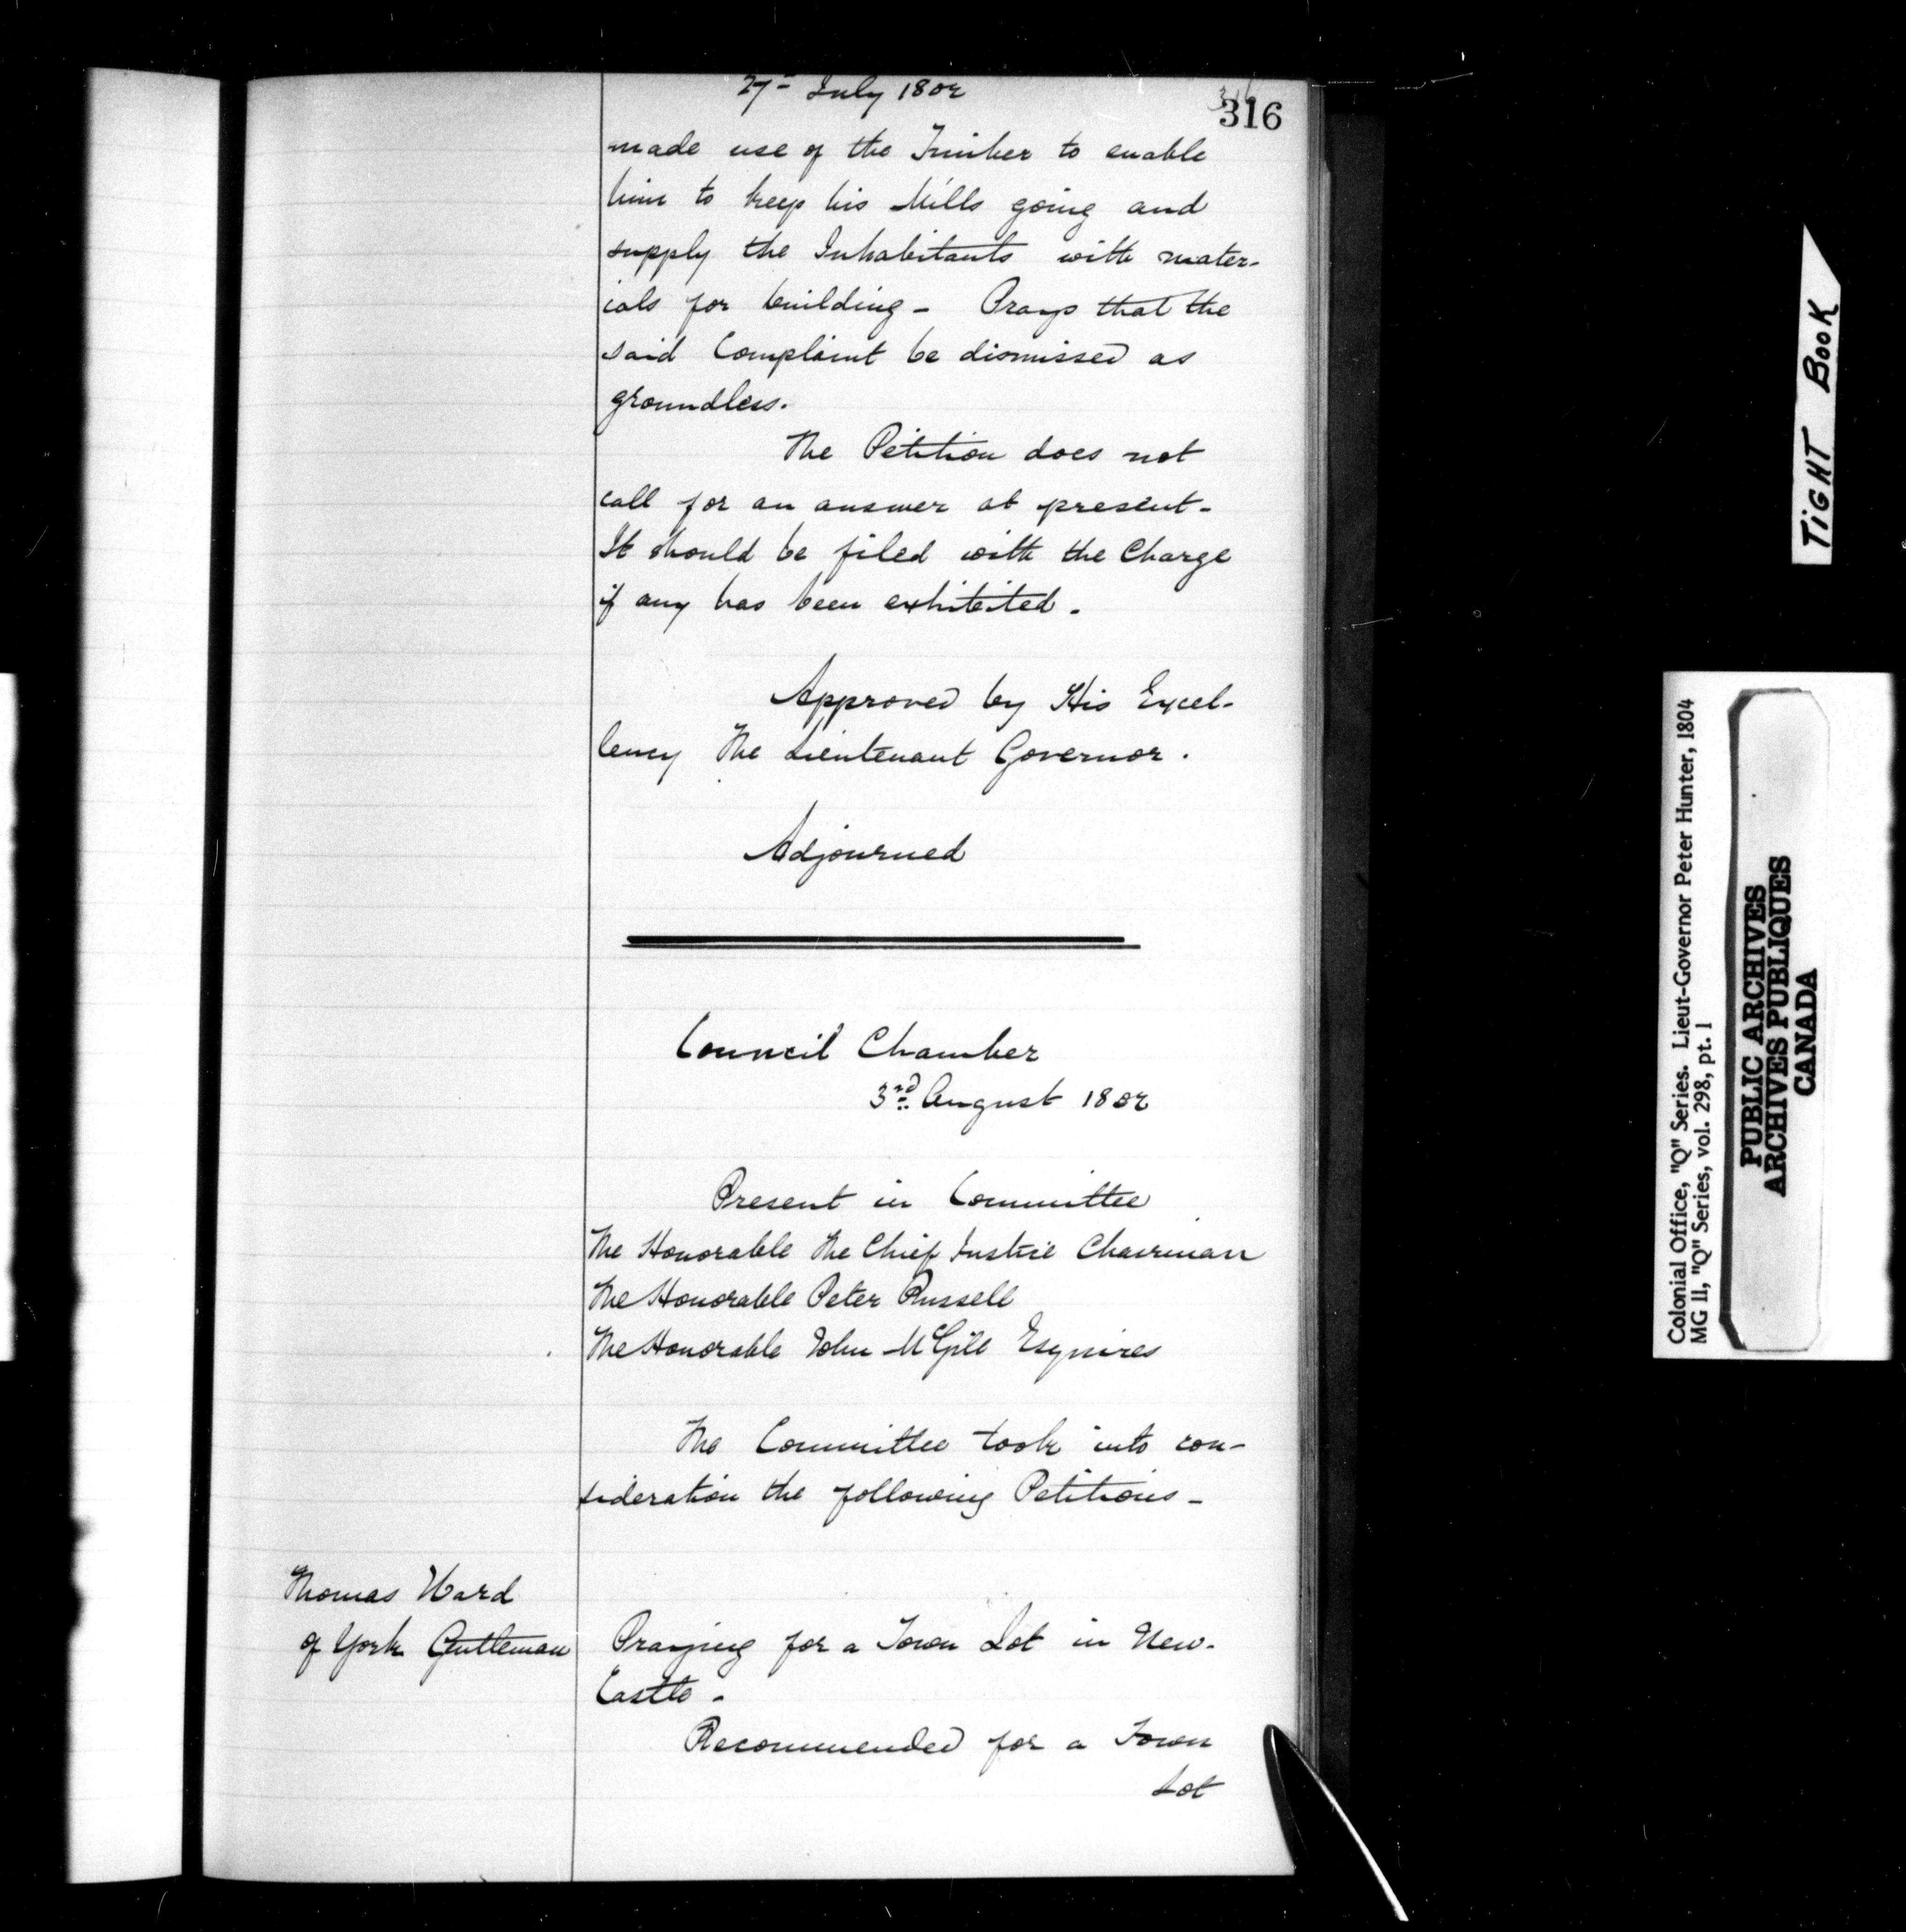 27th July 1802
316
made use of the Timber to enable
him to keep his Mills going and
supply the Inhabitants with mater-
ials for building - Prays that the
said Complaint be dismissed as
groundless.
The Petition does not
call for an answer at present -
It should be filed with the Charge
if any has been exhibited -
Approved by His Excel-
lency The Lieutenant Governor.
Adjourned
Council Chamber
3rd August 1802
Present in Committee
The Honorable The Chief Justice Chairman
The Honorable Peter Russell
The Honorable John McGill Esquires
The Committee took into con-
sideration the following Petitions -
Thomas Ward
of York Gentleman
Praying for a Town Lot in New-
Castle -
Recommended for a Town
Lot
TIGHT BOOK
Colonial Office, "Q" Series. Lieut-Governor Peter Hunter, 1804
MG 11, "Q" Series, vol. 298, pt. 1
PUBLIC ARCHIVES
ARCHIVES PUBLIQUES
CANADA